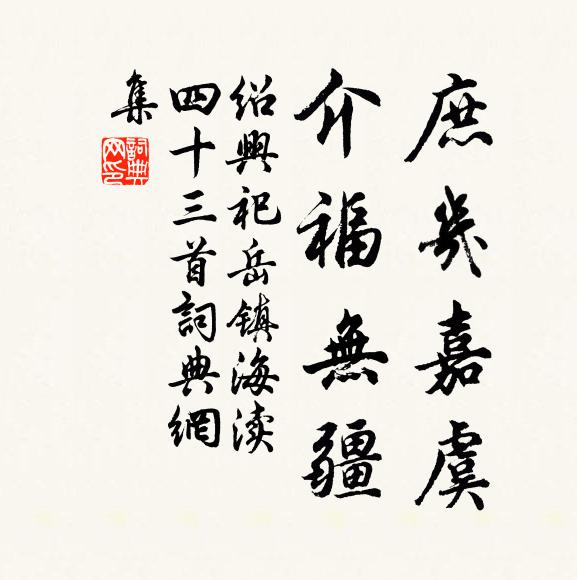 庶幾嘉虞
介福無疆
紹興祀岳鎮海渎
四十三首詞典網
集
詞典
网印